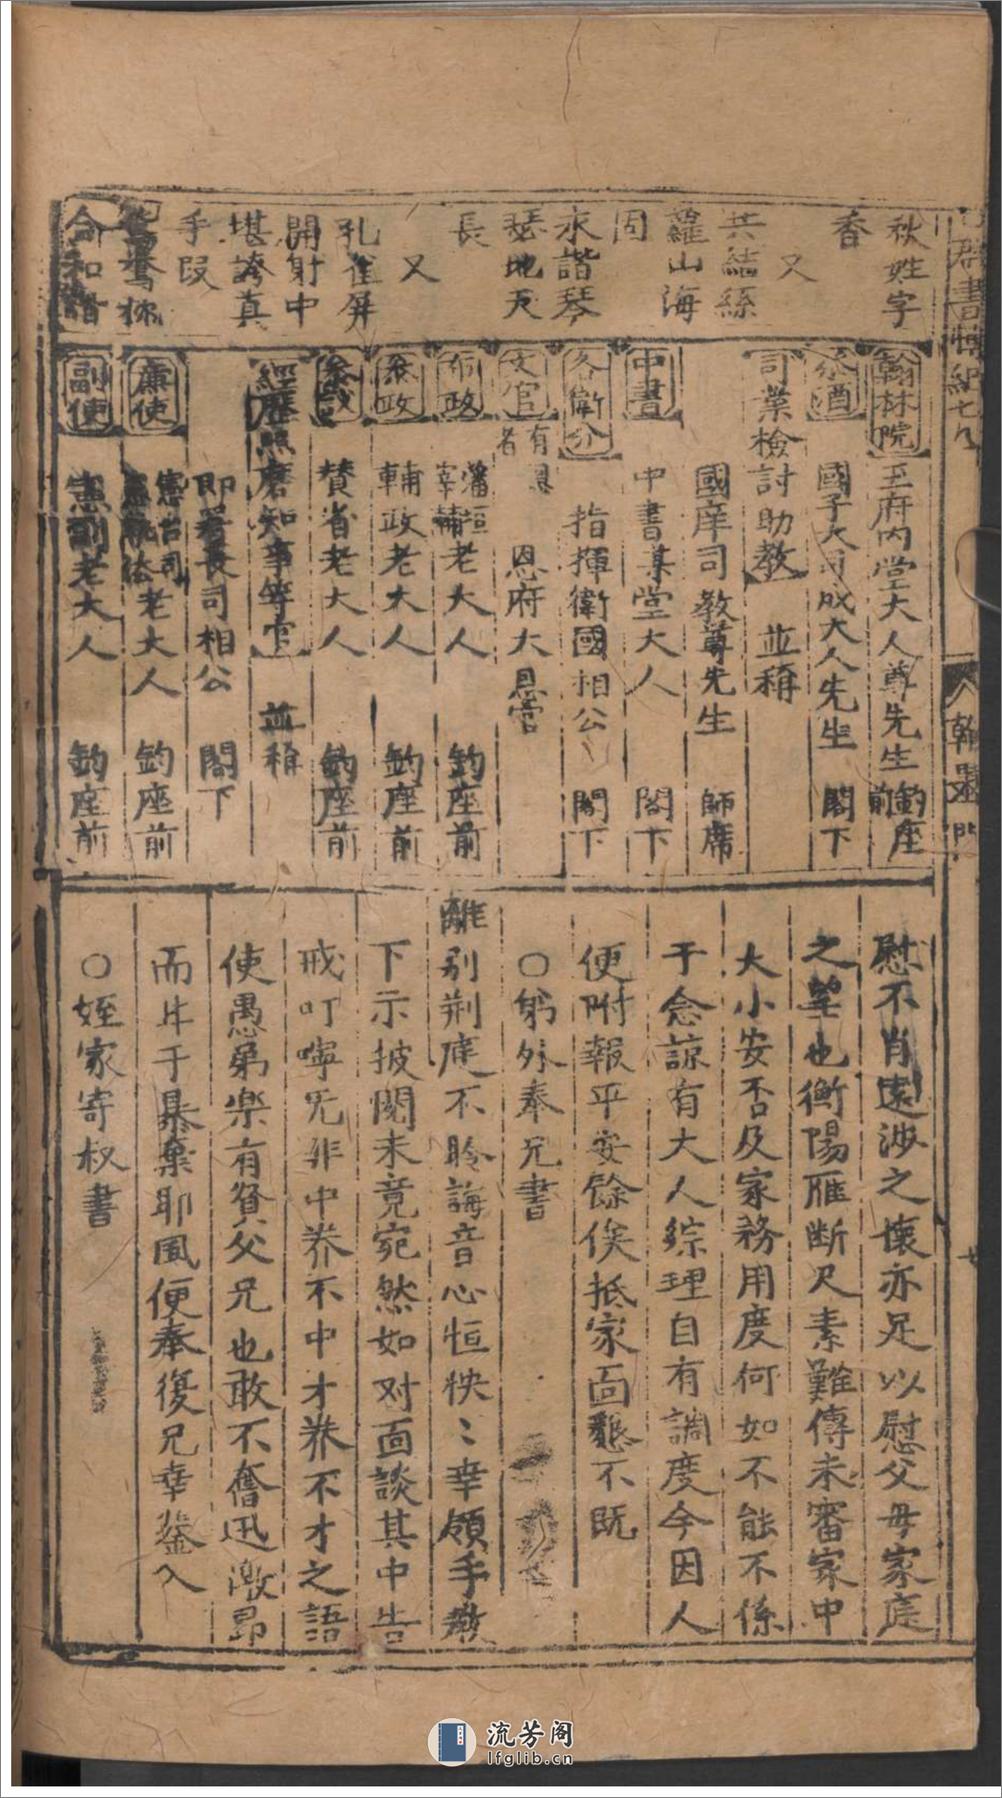 秋姓字
香
又
共結絲
蘿山海
固
永諧琴
瑟地天
長
又
孔雀屏
開射中
堪誇真
手段
鴦㳽
合和諧
翰林院 王府内堂大人尊先生 鈞座前
祭酒 國子大司成大人先生 閣下
司業檢討助教 並稱
國庠司教尊先生 師席
中書 中書某堂大人 閣下
各衛分 指揮衛國相公 閣下
文官 有恩者 恩府大恩官
布政 藩垣宰輔老大人 鈞座前
叅政 輔政老大人 鈞座前
叅議 賛省老大人 鈞座前
經歷照磨知事等官 並稱
即署長司相公 閣下
廉使 憲台司憲執法老大人 鈞座前
副使 憲副老大人 鈞座前
慰不肖遠涉之懷亦足以慰父毋家庭
之望也衡陽雁断尺素難傳未審家中
大小安否及家務用度何如不能不係
于念諒有大人綜理自有調度今因人
便附報平安餘俟抵家面懇不既
〇弟外奉兄書
離别荆庭不聆誨音心恒怏〻幸領手教
下示披閱未竟宛然如对面談其中告
戒叮嚀旡非中养不中才养不才之語
使愚弟樂有賢父兄也敢不奮迅激昂
而甘于暴棄耶風便奉復兄幸鉴入
〇姪家寄叔書
群書
翰墨門
流芳阁
lfglib.cn